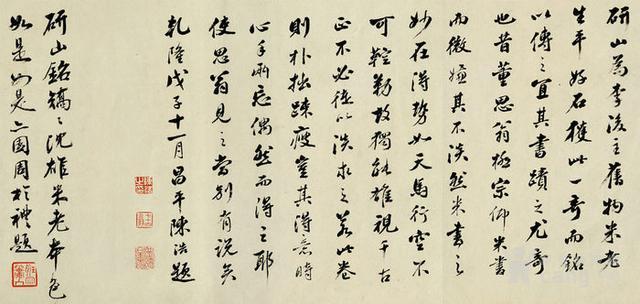 研山為李後主舊物米老
生平好石獲此一奇而銘
以傳之宜其書蹟之尤奇
也昔董思翁極宗仰米書
而微嫌其不淡然米書之
妙在得勢如天馬行空不
可鞚勒故獨能雄視千古
正不必徒以淡求之若此卷
則朴拙疎瘦豈其得意時
心手兩忘偶然而得之耶
使思翁見之當別有說矣
乾隆戊子十一月昌平陳浩題
研山銘鐍之沈雄米老本色
如是如是 周於禮題